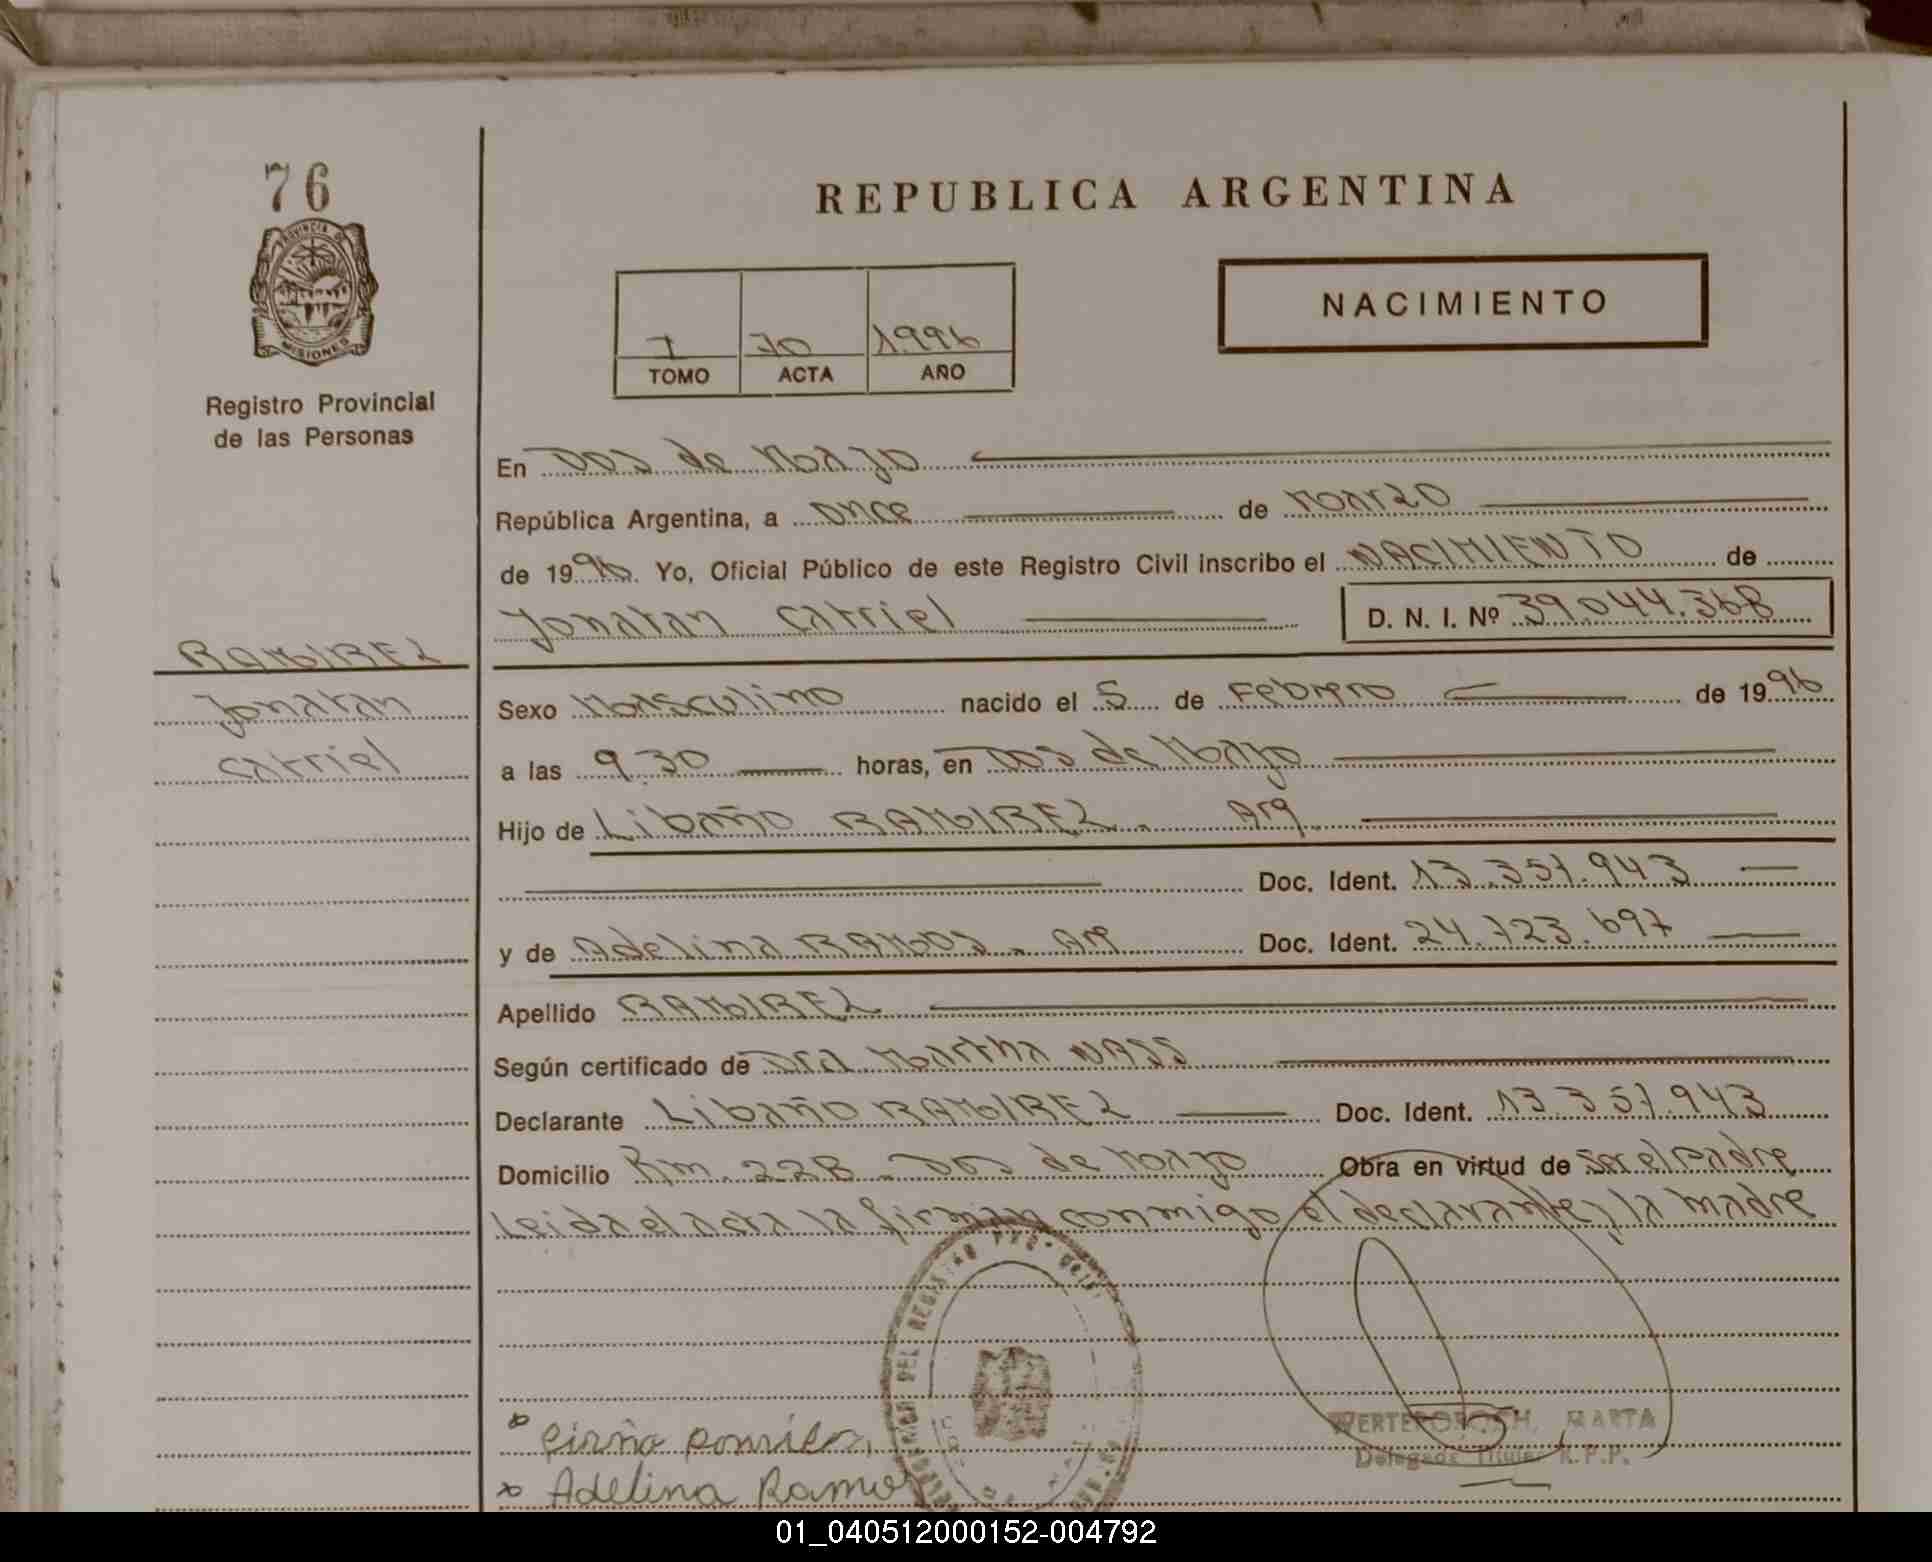 76
PROVINCIA DE
MISIONES
Registro Provincial
de las Personas
RAMIREZ
Jonatan
Catriel
REPUBLICA ARGENTINA
NACIMIENTO
I 70 1996
TOMO ACTA AÑO
En Dos de Mayo
República Argentina, a once de Marzo
de 1996. Yo, Oficial Público de este Registro Civil inscribo el NACIMIENTO de
Jonatan Catriel D. N. I. Nº 39.044.368
Sexo Masculino nacido el 5 de Febrero de 1996
a las 9.30 horas, en Dos de Mayo
Hijo de Libaño RAMIREZ. Arg.
Doc. Ident. 13.357.943
y de Adelina RAMOS. Arg Doc. Ident. 24.723.697
Apellido RAMIREZ
Según certificado de Dra Martha NASS
Declarante Libaño RAMIREZ Doc. Ident. 13.357.943
Domicilio Km. 228 - Dos de Mayo Obra en virtud de ser el Padre
Leida el acta la firman conmigo el declarante y la madre
DEL REGISTRO
WERTEPOROCH, MARTA
Delegada Titular R.P.P.
x Adelina Ramos
01_040512000152-004792